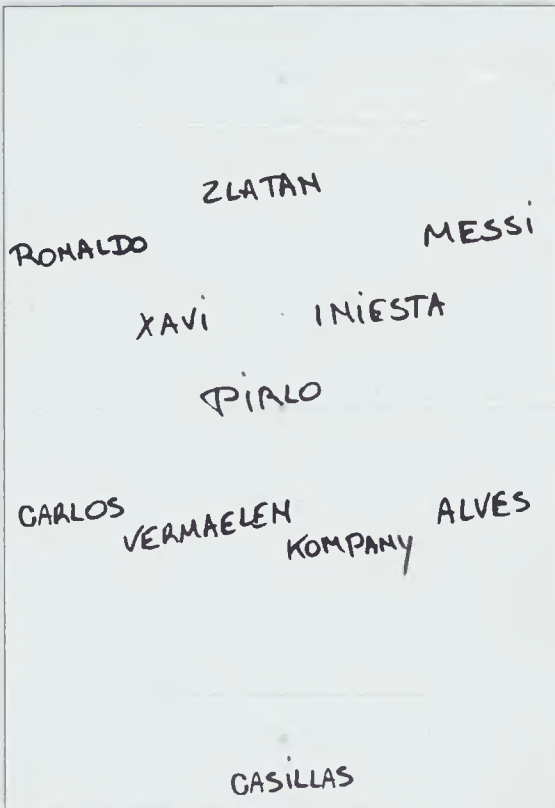 ZLATAN
RONALDO MESSI
XAVI INIESTA
PIRLO
CARLOS VERMAELEN KOMPANY ALVES
CASILLAS